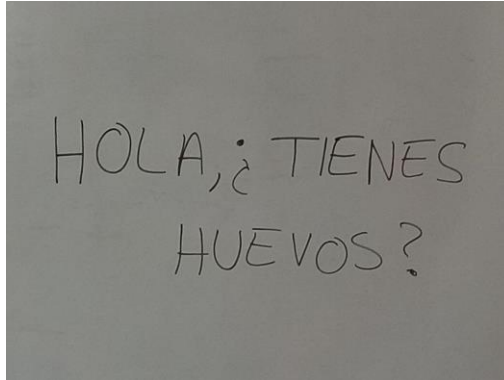 HOLA,¿TIENES
HUEVOS?